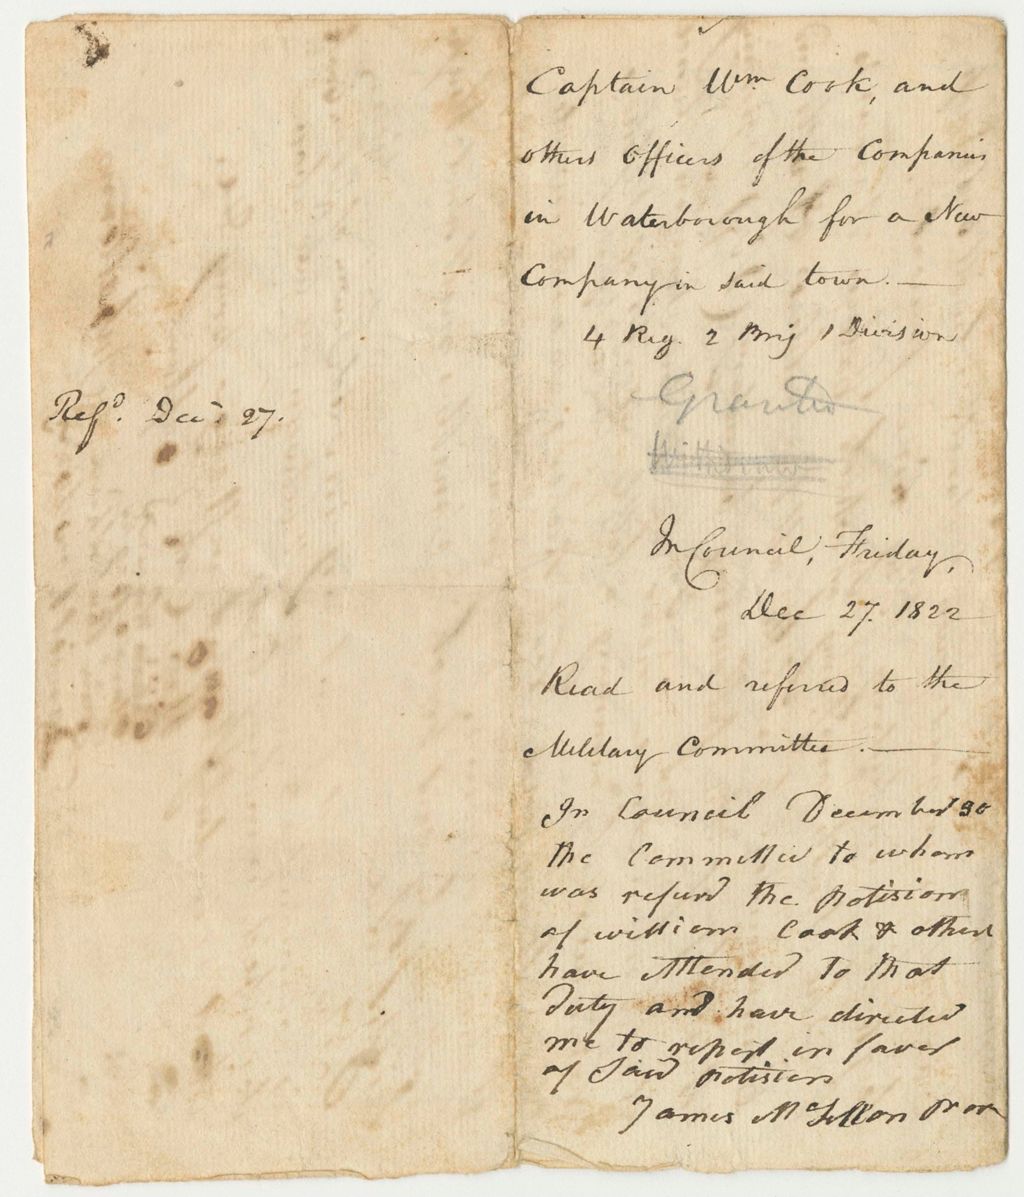 Refd. Dec. 27.
Captain Wm. Cook, and
others Officers of the Companies
in Waterborough for a New
Company in said town. —
4 Reg. 2 Brig 1 Division
Granted
Withdraw
In Council, Friday,
Dec 27. 1822
Read and referred to the
Military Committee. —
In Council December 30
the Committee to whom
was referd the Potision
of william Cook & others
have Attended to that
duty and have directed
me to report in faver
of Said Potision
James